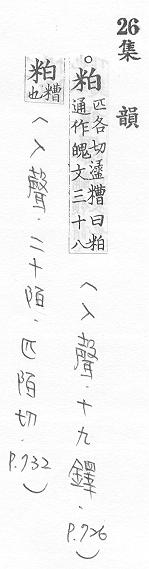 26
集韻
粕 匹各切溘糟曰粕
通作魄文三十八
(入聲．十九鐸．P.726)
粕 糟
也
(入聲．二十陌．匹陌切．P.732)